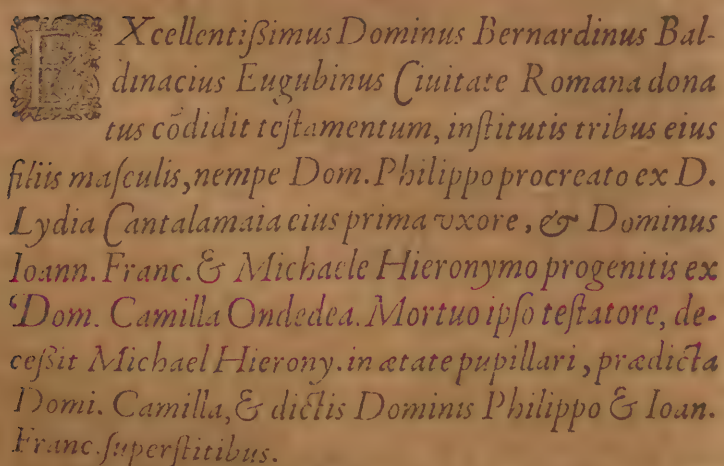 EXcellentißimus Dominus Bernardinus Bal-
dinacius Eugubinus Ciuitate Romana dona
tus cõdidit teſtamentum, inſtitutis tribus eius
filiis maſculis, nempe Dom. Philippo procreato ex D.
Lydia Cantalamaia eius prima vxore, & Dominus
Ioann. Franc. & Michaele Hieronymo progenitis ex
Dom. Camilla Ondedea. Mortuo ipſo teſtatore, de-
ceßit Michael Hierony. in ætate pupillari, prædicta
Domi. Camilla, & dictis Dominis Philippo & Ioan.
Franc. ſuperſtitibus.